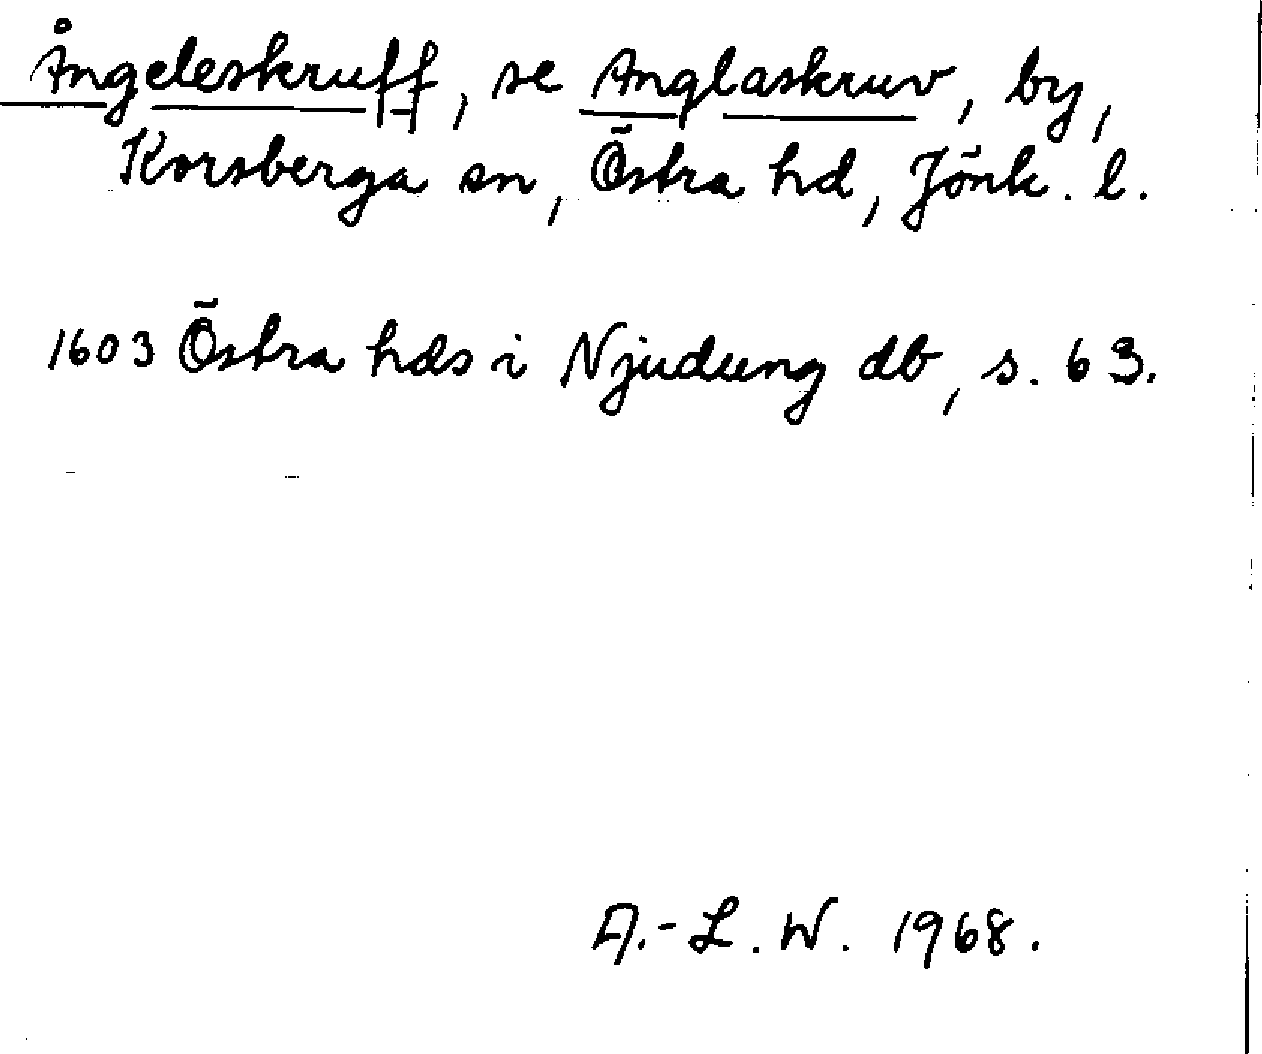 Ångeleskruff, se Anglaskruv, by,
Korsberga sn, Östra hd, Jönk. l.
1603 Östra hds i Njudung db, s. 63.
A.-L. W. 1968.